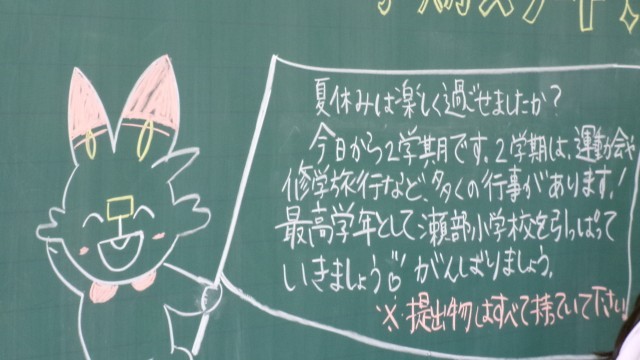 夏休みは楽しく過ごせましたか?
今日から2学期です。2学期は、運動会や
修学旅行など、多くの行事があります!
最高学年として瀬部小学校を引っぱって
いきましょう! がんばりましょう。
※提出物はすべて持っていて下さい